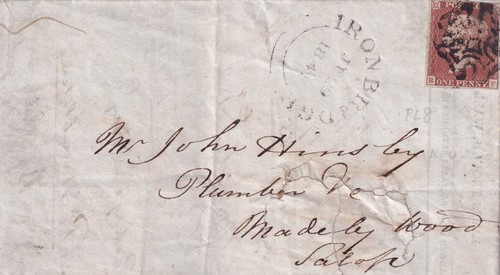 IRONBRIDGE
JY
1841
R E
ONE PENNY
PL8
Mr John Hinsby
Plumber &c
Madeley Wood
Salop